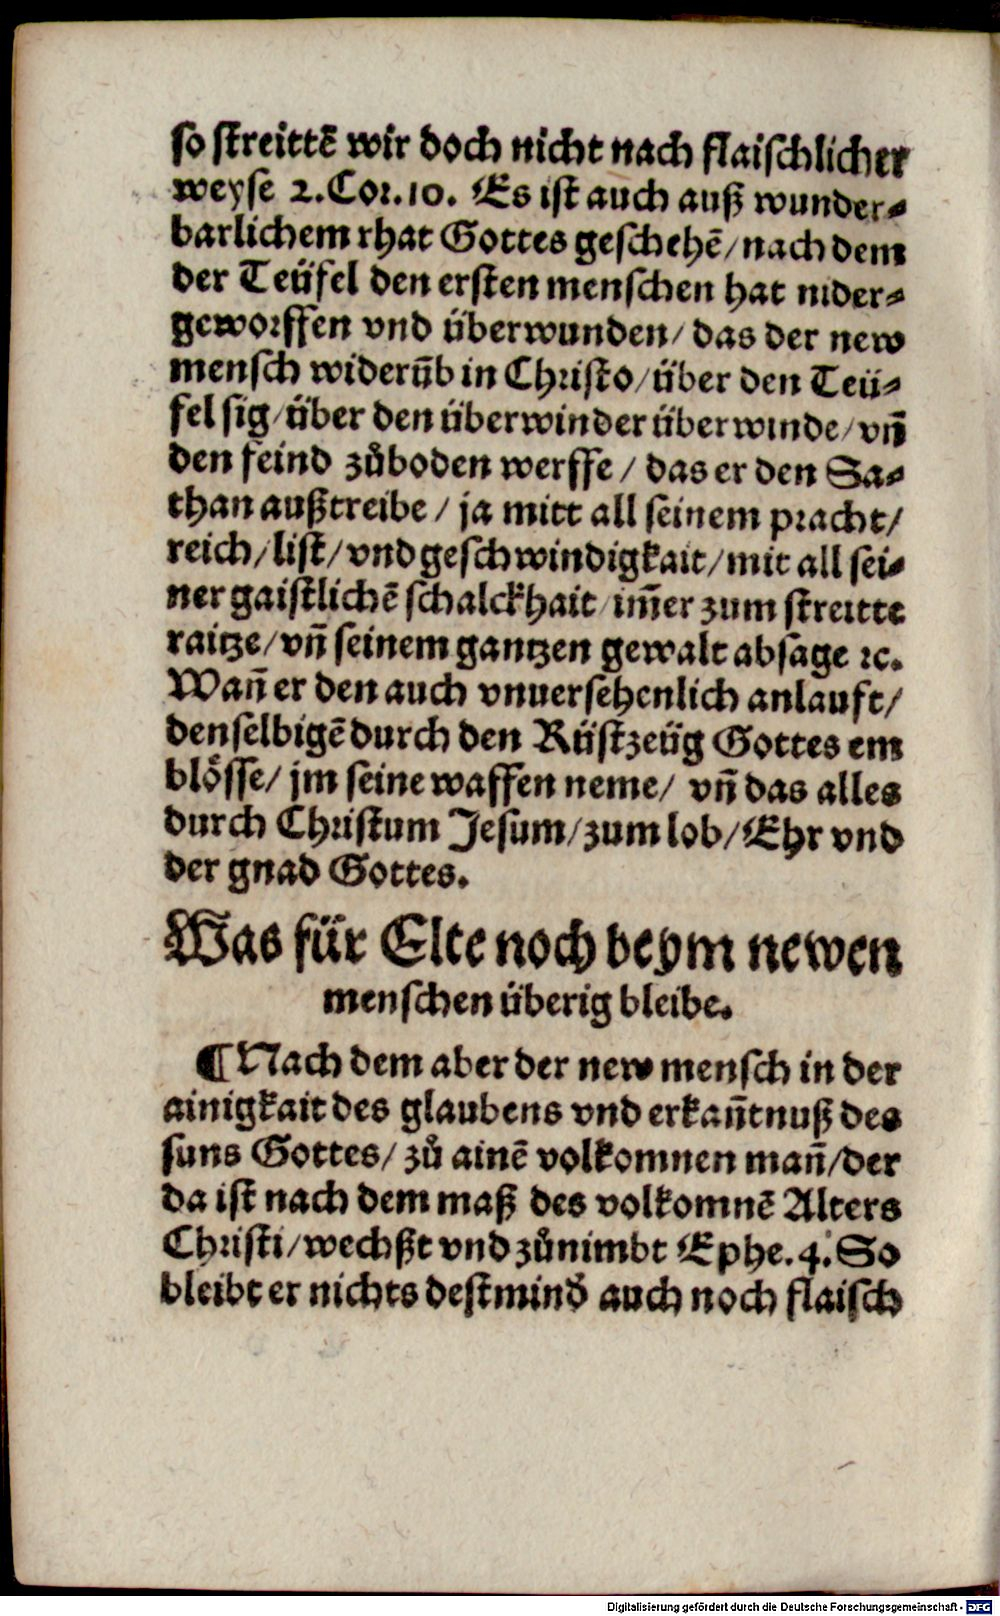 so streittē wir doch nicht nach flaischlicher
weyse 2. Cor. 10. Es ist auch auß wunder-
barlichem rhat Gottes geschehē/ nach dem
der Teüfel den ersten menschen hat nider-
geworffen vnd überwunden/ das der new
mensch widerūb in Christo/ über den Teü-
fel sig/ über den überwinder überwinde/ vñ
den feind zůboden werffe/ das er den Sa-
than außtreibe/ ja mitt all seinem pracht/
reich/ list/ vnd geschwindigkait/ mit all sei-
ner gaistlichē schalckhait/ im̄er zum streitte
raitze/ vñ seinem gantzen gewalt absage ꝛc.
Wañ er den auch vnuersehenlich anlauft/
denselbigē durch den Rüstzeüg Gottes em
blösse/ jm seine waffen neme/ vñ das alles
durch Christum Jesum/ zum lob/ Ehr vnd
der gnad Gottes.
Was für Elte noch beym newen
menschen überig bleibe.
¶ Nach dem aber der new mensch in der
ainigkait des glaubens vnd erkañtnuß des
suns Gottes/ zů ainē volkomnen mañ/ der
da ist nach dem maß des volkomnē Alters
Christi/ wechßt vnd zůnimbt Ephe. 4. So
bleibt er nichts destmind̕ auch noch flaisch
Digitalisierung gefördert durch die Deutsche Forschungsgemeinschaft - DFG